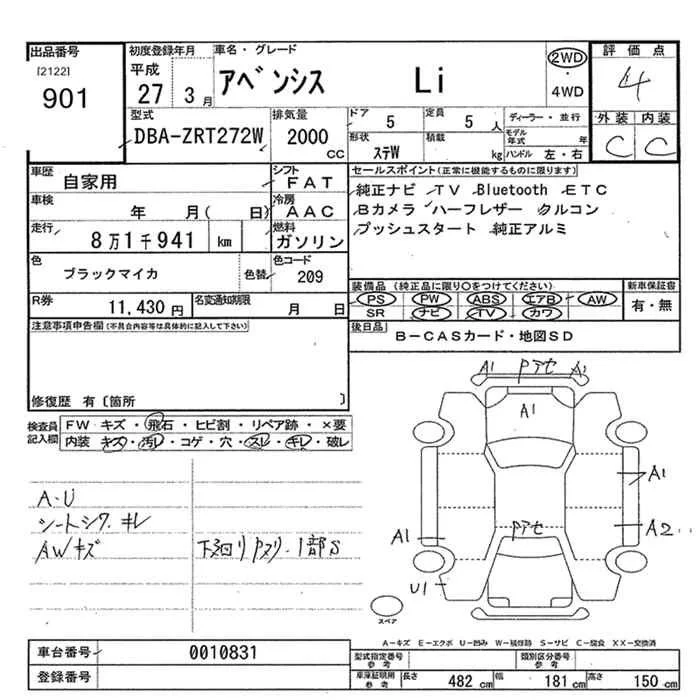 出品番号 初度登録年月 車名・グレード 評価点
[2122] 平成 2WD
901 27 3月 アベンシス Li ・ 4WD 4
型式 排気量 ドア 定員 ディーラー・並行 外装 内装
DBA-ZRT272W 2000 CC 5 5人 モデル年式 年 C C
形状 ステW 積載 kg ハンドル 左・右
車歴 自家用 シフト FAT セールスポイント(正常に機能するものに限ります)
車検 年 月( 日) 冷房 AAC 純正ナビ TV Bluetooth ETC
走行 8万1千941 km 燃料 ガソリン Bカメラ ハーフレザー クルコン
プッシュスタート 純正アルミ
色 ブラックマイカ 色替 色コード 209
装備品(純正品に限り○をつけてください) 新車保証書
R券 11,430円 名変通知期限 月 日 PS PW ABS エアB AW 有・無
SR ナビ TV カワ
注意事項申告欄(不具合内容等は具体的に記入して下さい) 後日品 B-CASカード・地図SD
修復歴 有〔箇所 〕
検査員記入欄 FW キズ・飛石・ヒビ割・リペア跡・×要
内装 キズ・汚レ・コゲ・穴・スレ・キレ・破レ
A1 Pアセ A1
A1
A1
A・U
シートシワ キレ
AWキズ 下廻りPヌリ・1部S
A1 Pアセ A2
U1
スペア
A-キズ E-エクボ U-凹み W-補修跡 S-サビ C-腐食 XX-交換済
車台番号 0010831 型式指定番号 参考 類別区分番号 参考
登録番号 車庫証明用 参考 長さ 482cm 幅 181cm 高さ 150cm